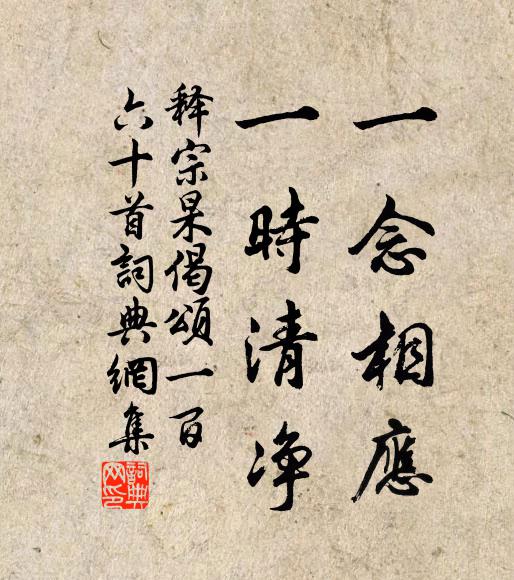 一念相應
一時清净
释宗杲偈頌一百
六十首詞典網集
詞典
网印